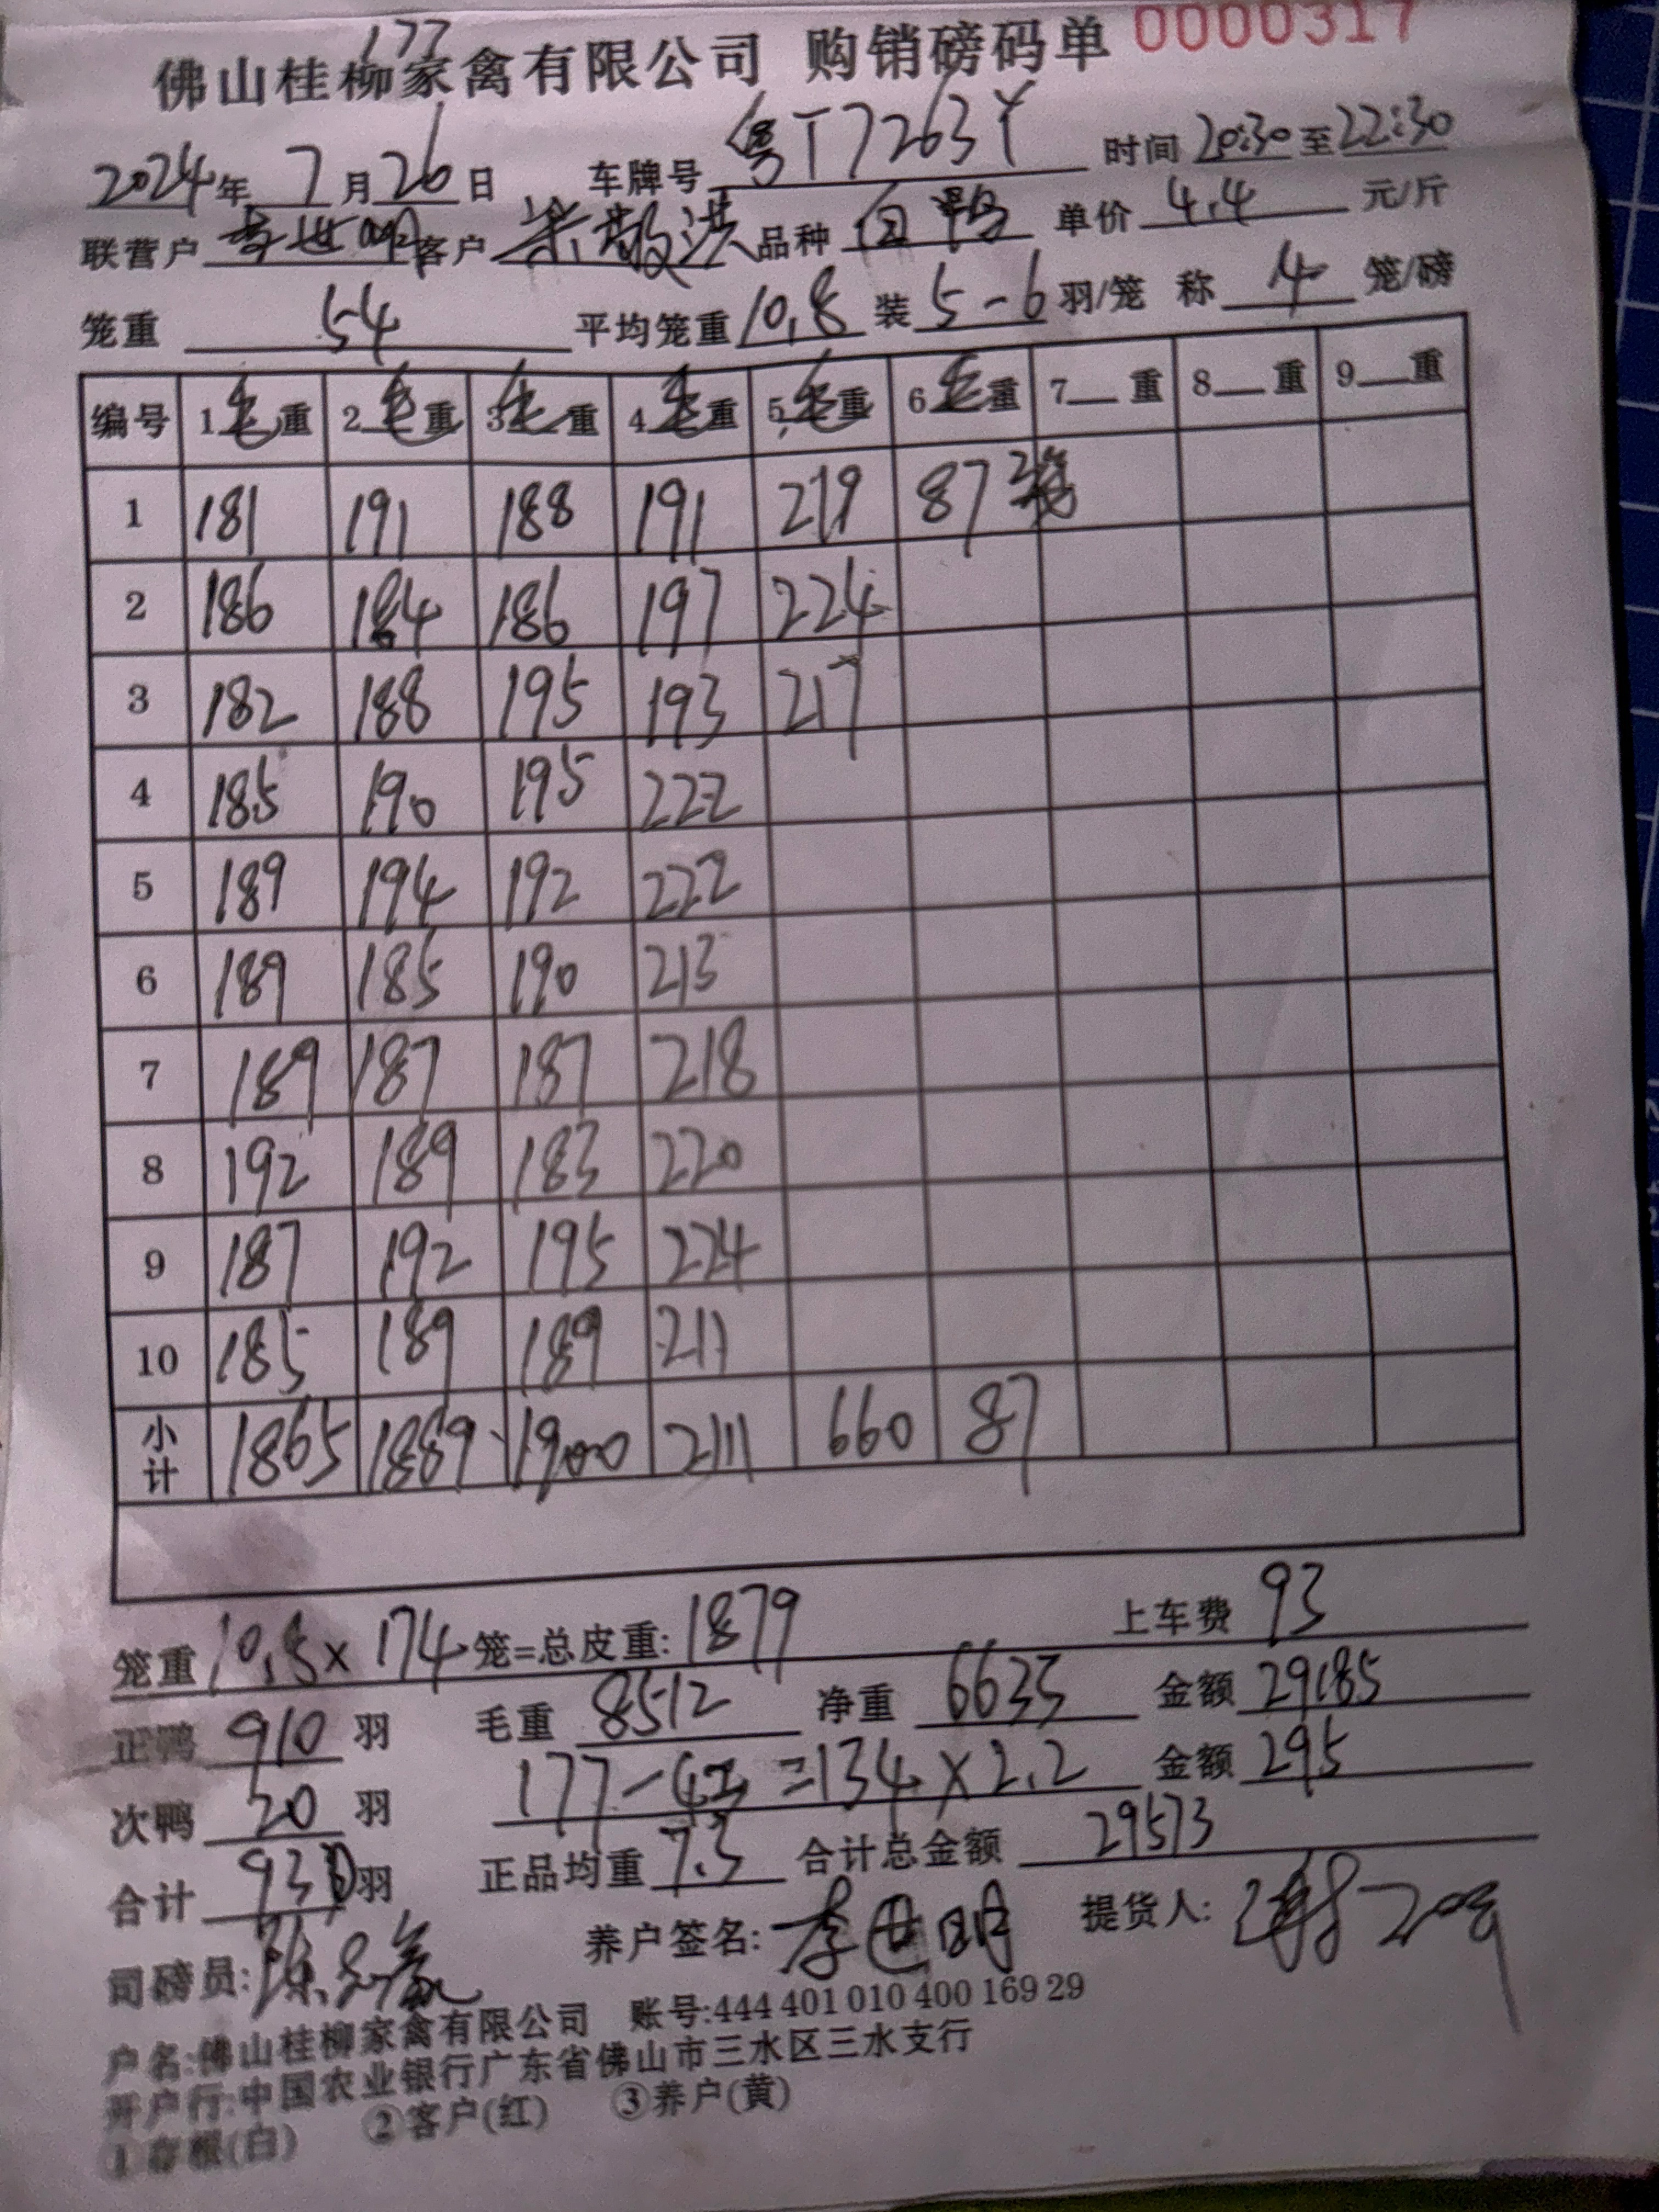 0000317
177
佛山桂柳家禽有限公司 购销磅码单
2024年 7月26日 车牌号 粤T7263Y 时间 20:30 至 22:30
联营户 李世明 客户 洪 品种 白鸭 单价 4.4 元/斤
笼重 54 平均笼重 10.8 装 5-6 羽/笼 称 4 笼/磅
编号 1毛重 2毛重 3毛重 4毛重 5毛重 6毛重 7 重 8 重 9 重
1 181 191 188 191 219 87
2 186 184 186 197 224
3 182 188 195 193 217
4 185 190 195 222
5 189 194 192 222
6 189 185 190 213
7 189 187 187 218
8 192 189 183 220
9 187 192 195 224
10 185 189 189 211
小计 1865 1889 1900 2111 660 87
笼重 10.8×174笼=总皮重: 1879 上车费 93
正鸭 910 羽 毛重 8512 净重 6633 金额 29185
次鸭 20 羽 177-43=134×2.2 金额 295
合计 930 羽 正品均重 7.3 合计总金额 29573
司磅员: 养户签名: 李世明 提货人:
户名:佛山桂柳家禽有限公司 账号:444 401 010 400 169 29
开户行:中国农业银行广东省佛山市三水区三水支行
①存根(白) ②客户(红) ③养户(黄)